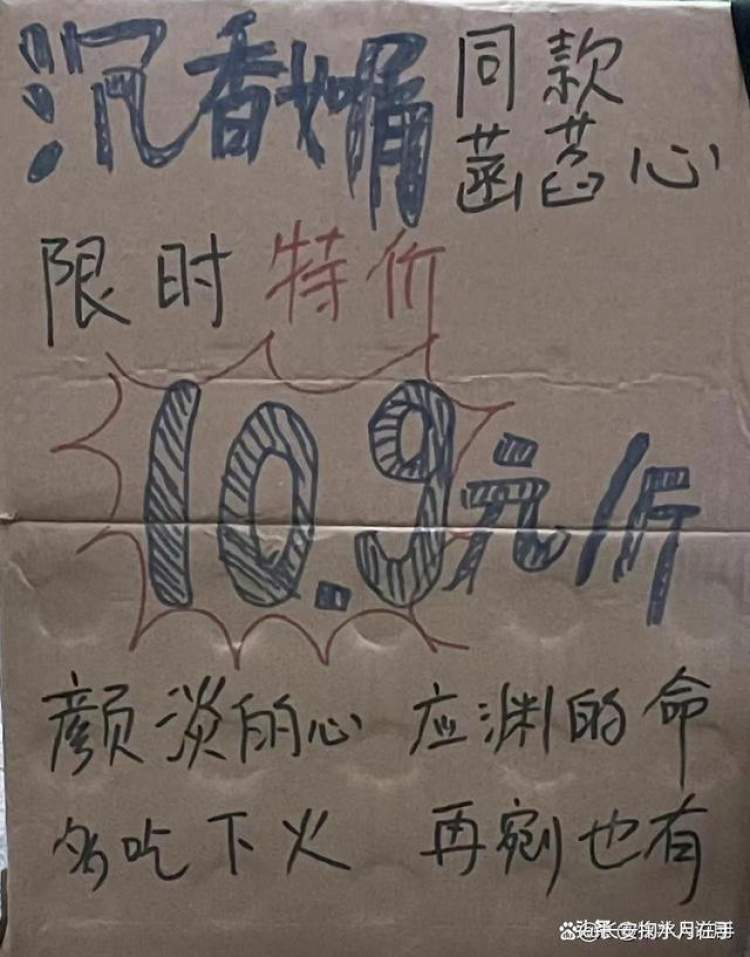 沉香如屑 同款
菡萏心
限时特价
10.9元/斤
颜淡的心 应渊的命
多吃下火 再剜也有
@长安掬水月在手